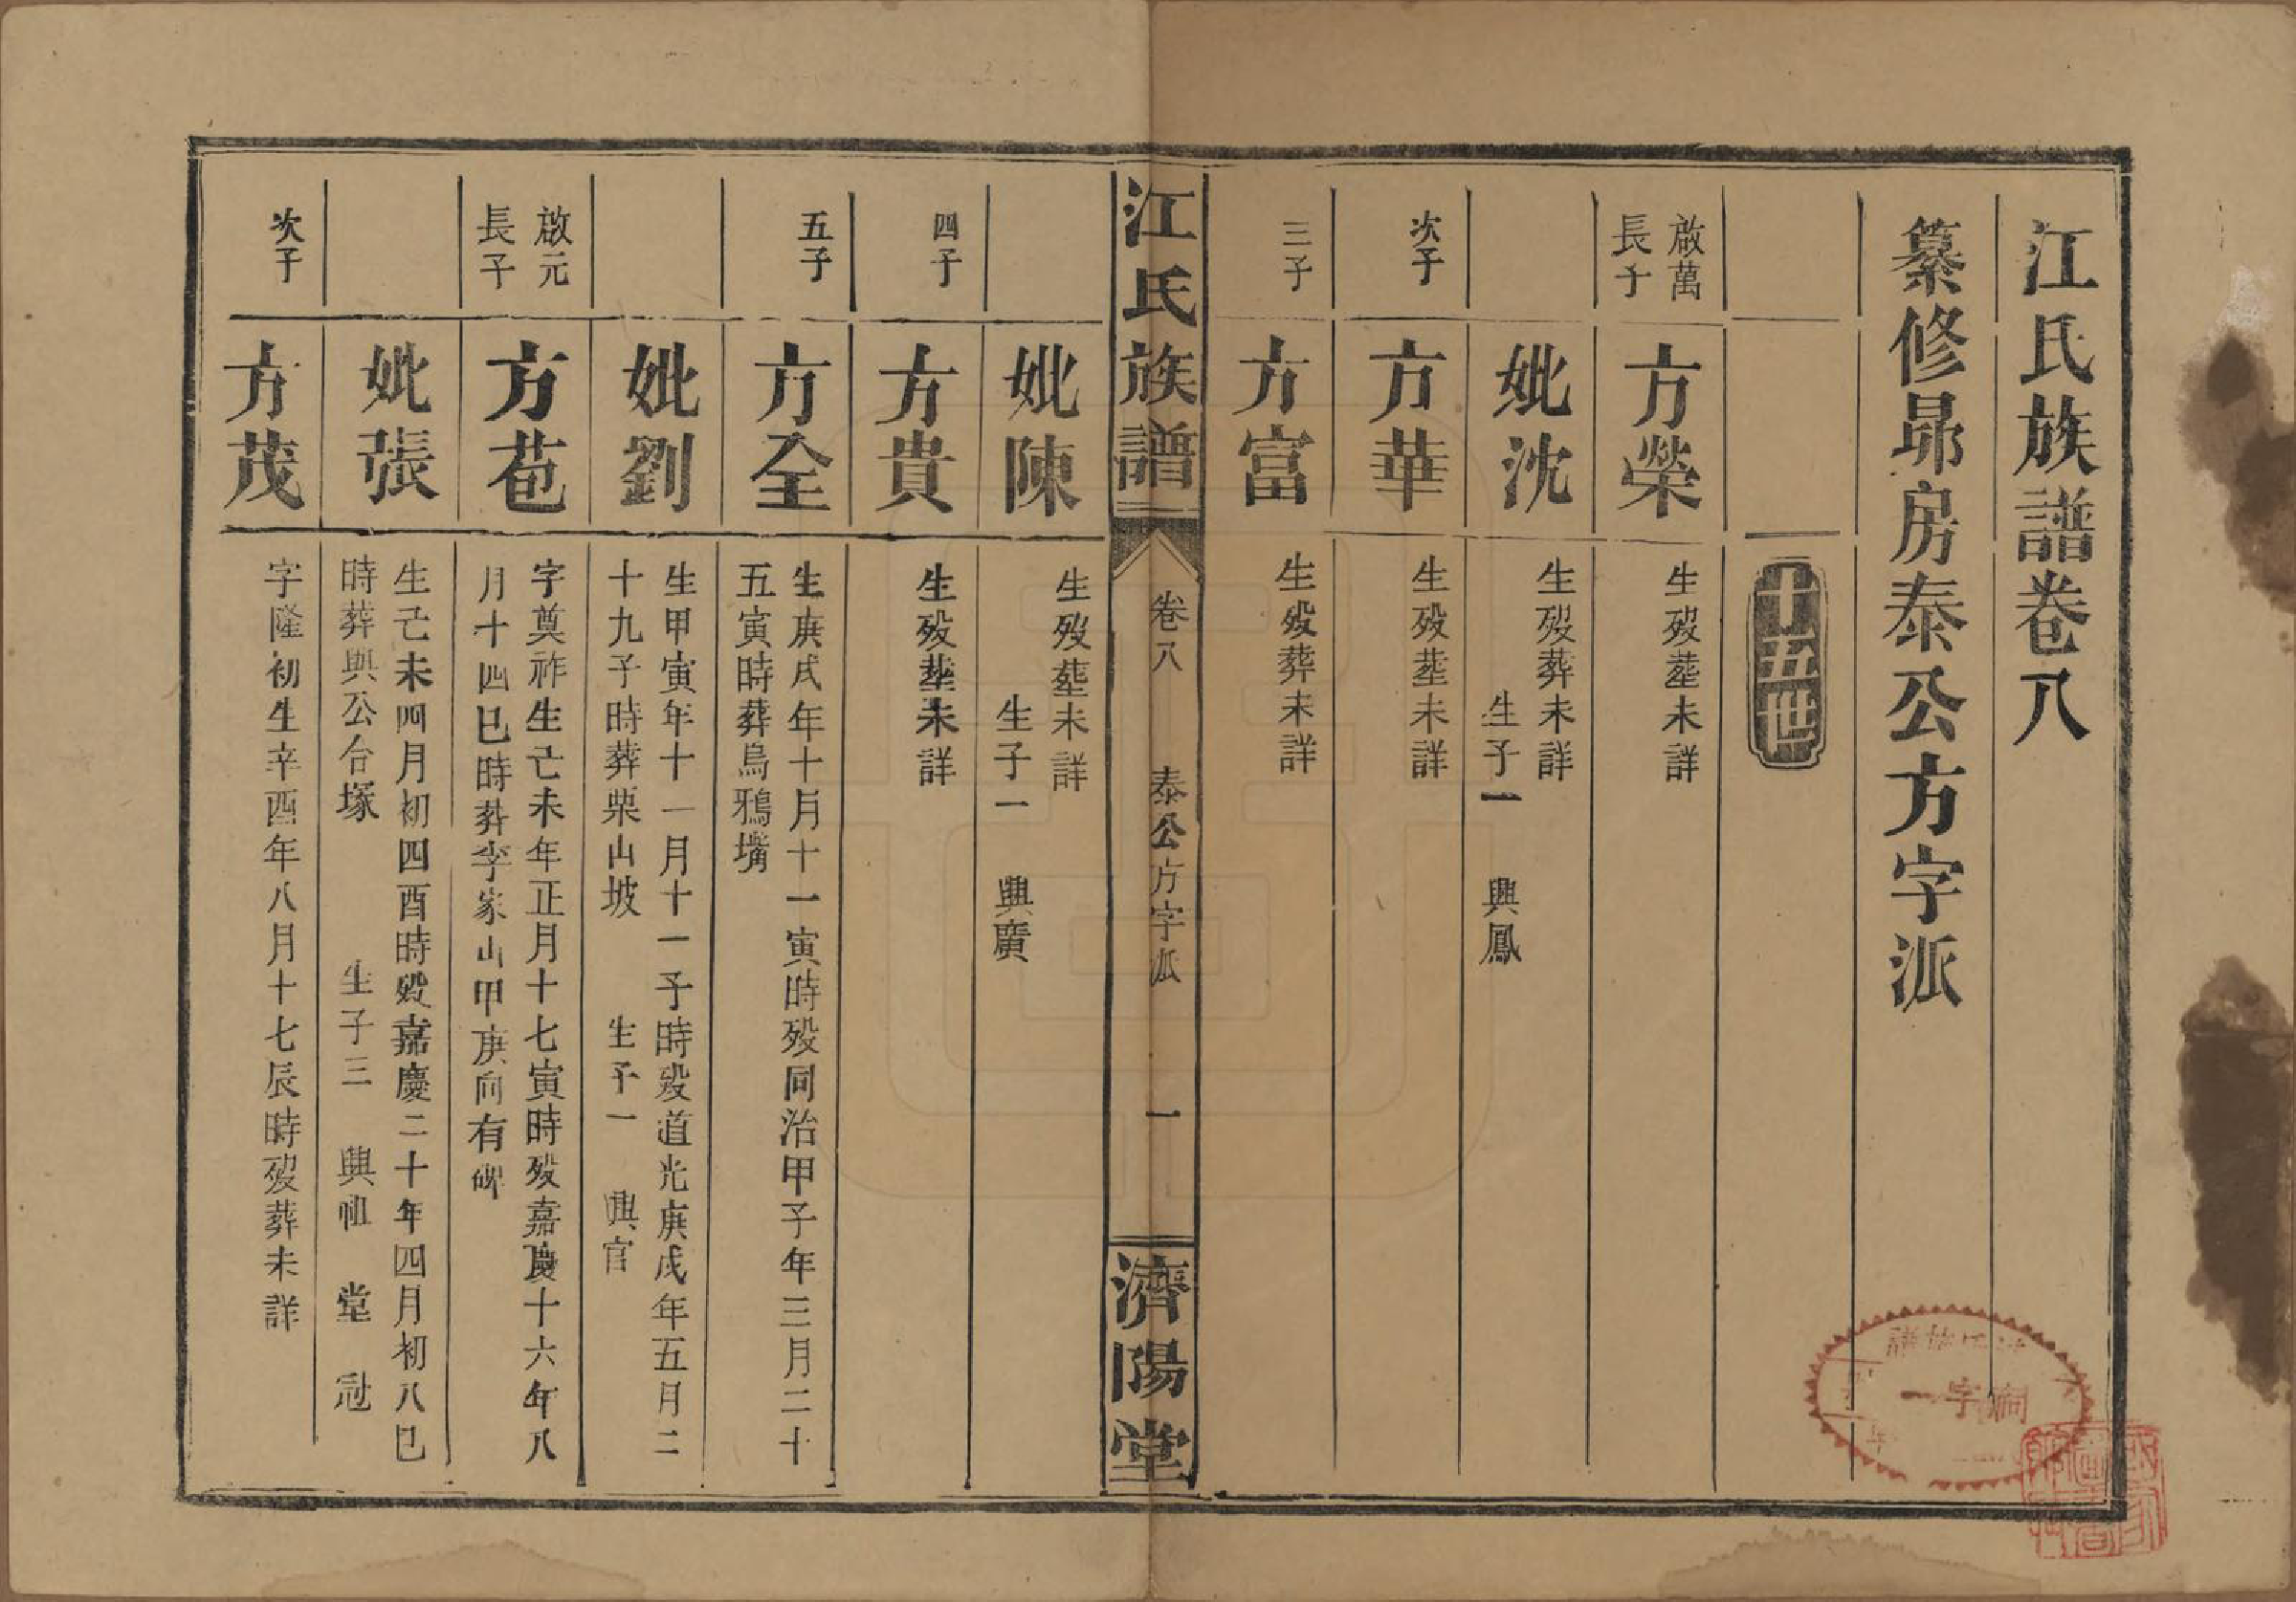 江氏族譜卷八
纂修昴房泰公方字派
十五世
啟萬
長子
方榮
生歿塟未詳
妣沈
生歿葬未詳
生子一　興鳳
次子
方華
生歿塟未詳
三子
方富
生歿葬未詳
江氏族譜
卷八
泰公方字派
一
濟陽堂
妣陳
生歿塟未詳
生子一　興廣
四子
方貴
生歿塟未詳
五子
方全
生庚戌年十月十一寅時歿同治甲子年三月二十
五寅時葬烏鴉嘴
妣劉
生甲寅年十一月十一子時歿道光庚戌年五月二
十九子時葬栗山坡　生子一　興官
啟元
長子
方苞
字奠祚生己未年正月十七寅時歿嘉慶十六年八
月十四巳時葬李家山甲庚向有碑
妣張
生己未四月初四酉時歿嘉慶二十年四月初八巳
時葬興公台塚　生子三　興祖　堂　冠
次子
方茂
字隆初生辛酉年八月十七辰時歿葬未詳
字一